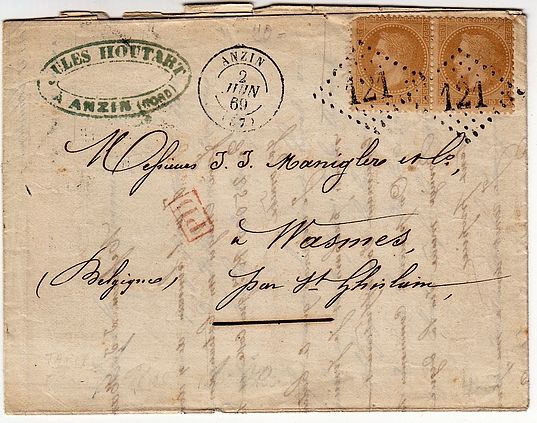 JULES HOUTART
A ANZIN (NORD)
ANZIN
2
JUIN
69
(57)
121
121
Messieurs J. J. Maniglere et Co,
PD
à Wasmes,
(Belgique)
par St Ghislain,